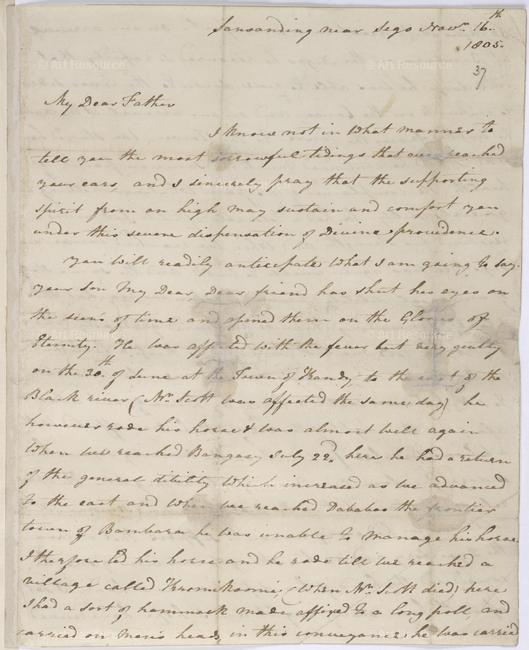 Sansanding near Sego Novr. 16th
1805.
37
My Dear Father
I know not in what manner to
tell you the most sorrowful tidings that ever reached
your ears, and I sincerely pray that the supporting
spirit from on high may sustain and comfort you
under this severe dispensation of Divine providence.
You will readily anticipate what I am going to say.
your son My Dear Dear friend has shut his eyes on
the scens of time and opened them on the Glories of
Eternity. He was affected with the fever but very gently
on the 30th of June at the Town of to the east of the
Black river (Mr. Scott was affected the same day) he
however rode his horse & was almost well again
when we reached Bangasy July 22d. here he had a return
of the general debility which increased as we advanced
to the east and when we reached Dababoo the frontier
town of Bambara he was unable to manage his horse
I therefore led his horse and he rode till we reached a
village called (When Mr. Scott died) here
I had a sort of hammock made affixed to a long poll, and
carried on men's heads, in this conveyance he was carried
© Art Resource
© Art Resource
© Art Resource
© Art Resource